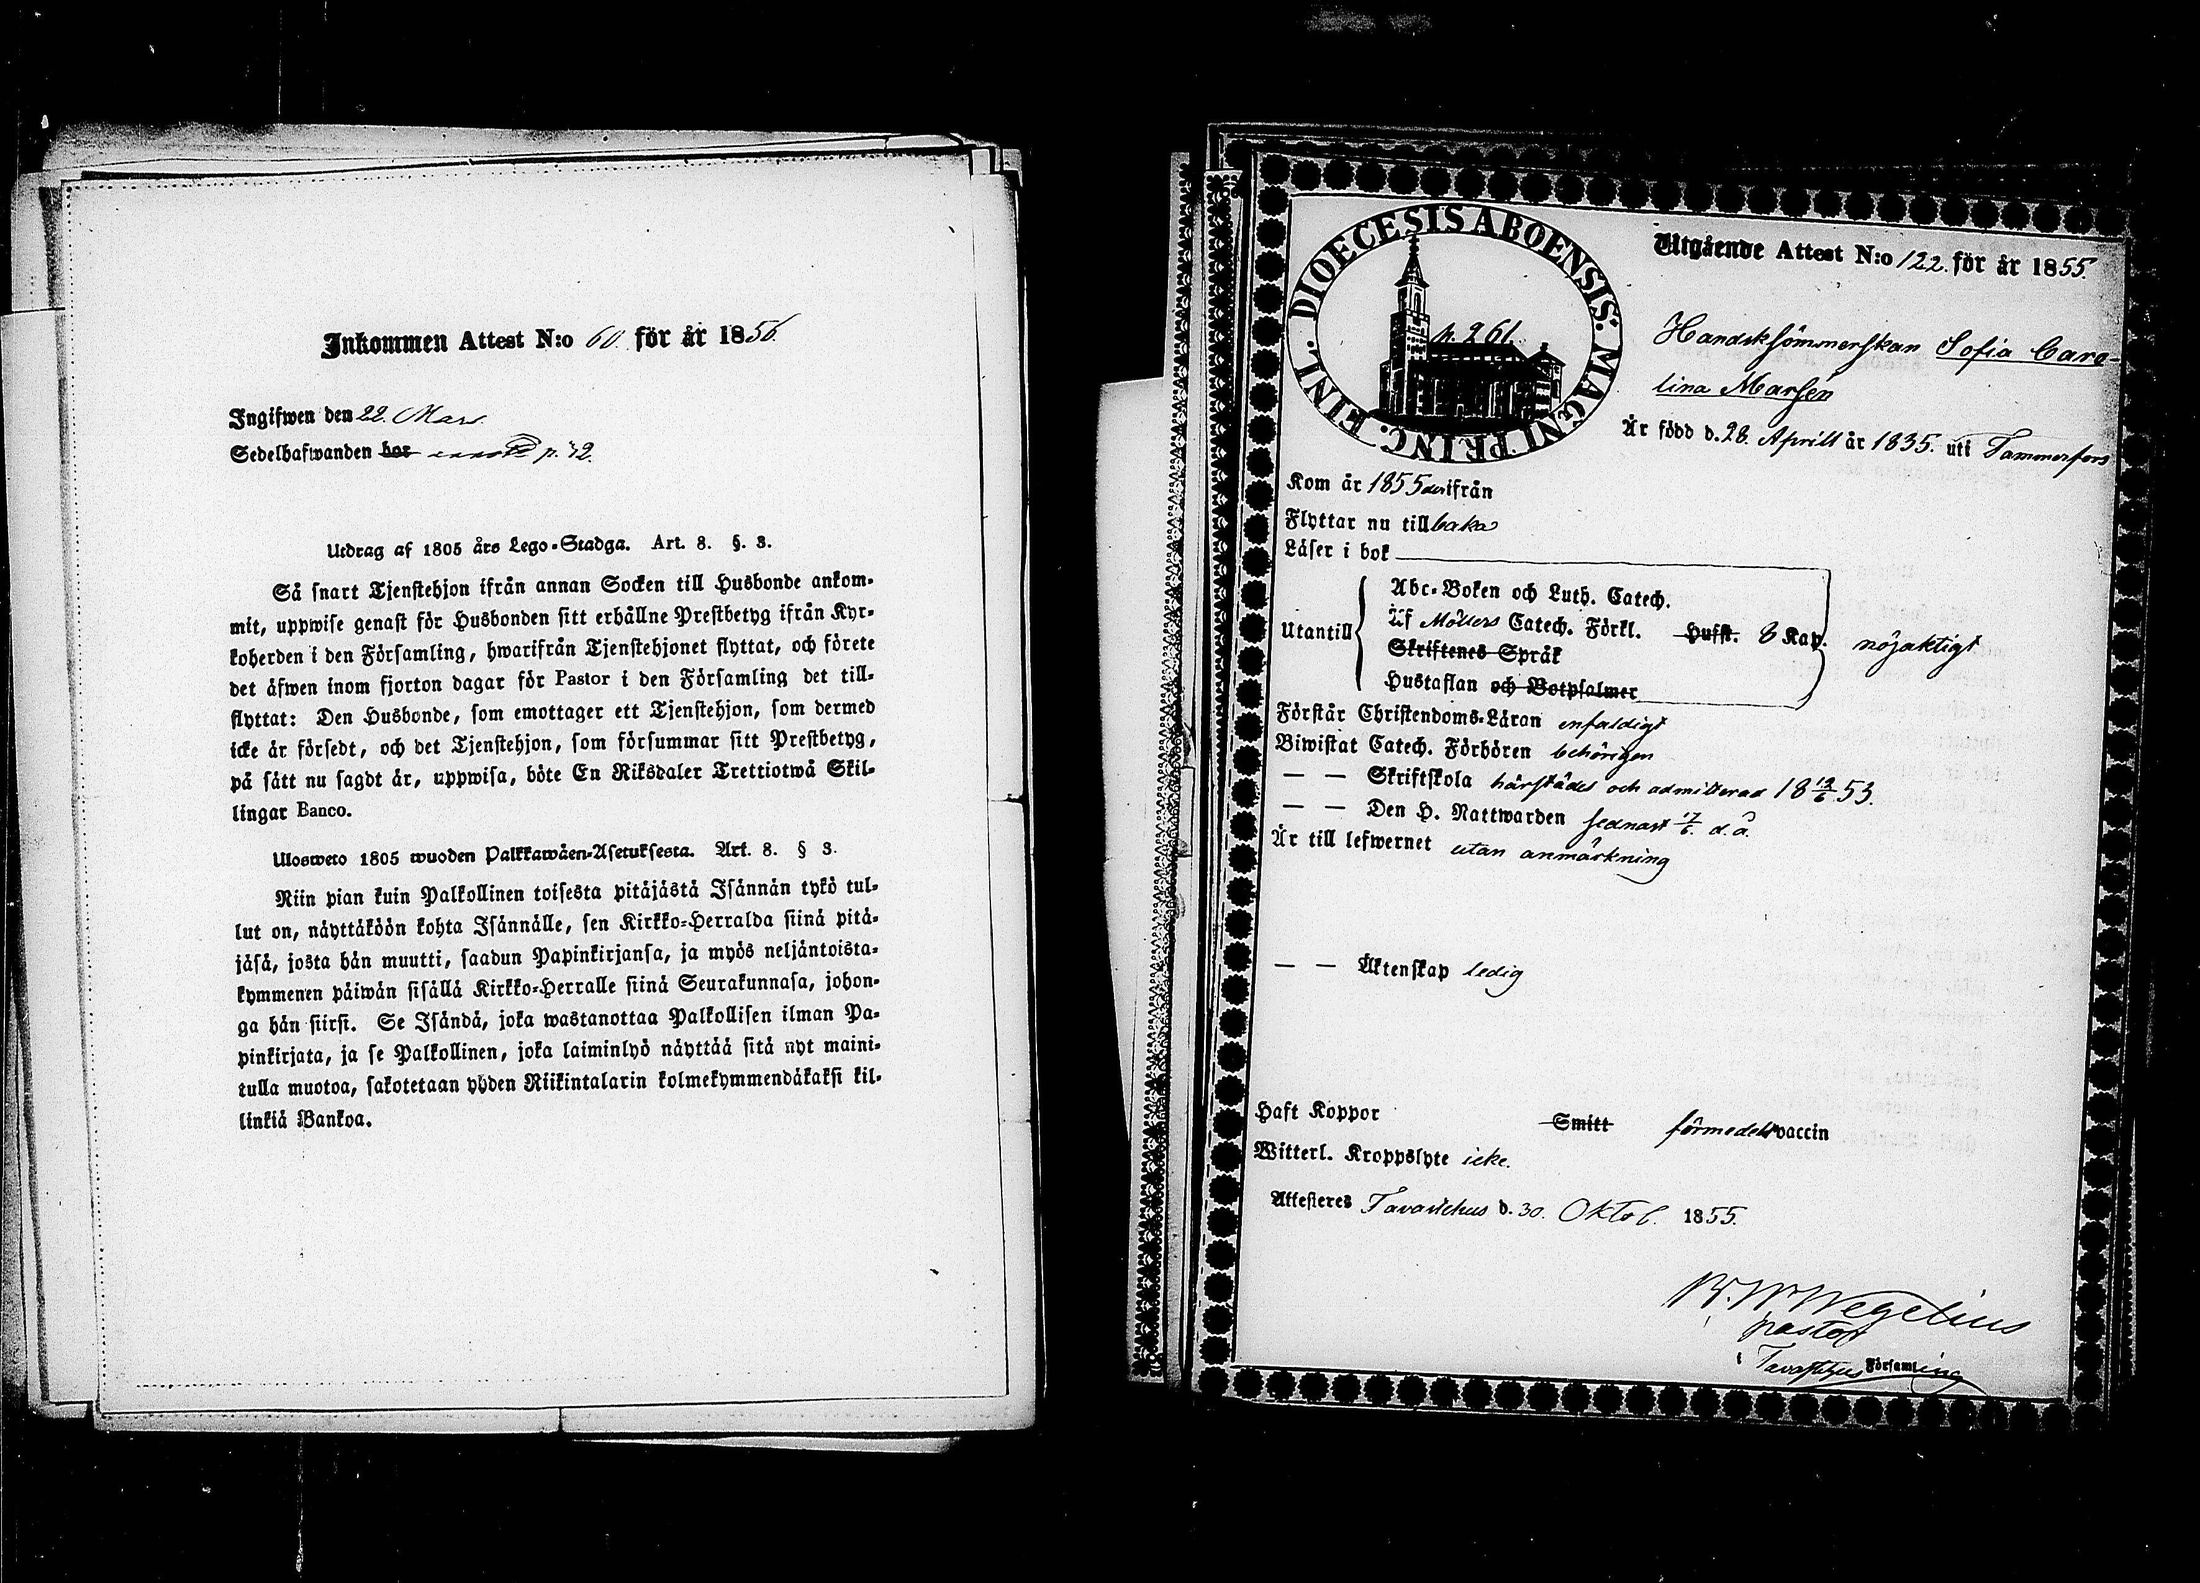 Inkommen Attest N:o 60. för år 1856.
Ingifwen den 22. Mars.
Sedelhafwanden bor p. 42.
Utdrag af 1805 års Lego-Stadga. Art. 8. §. 3.
Så snart Tjenstehjon ifrån annan Socken till Husbonde ankom-
mit, uppwise genast för Husbonden sitt erhållne Prestbetyg ifrån Kyr-
koherden i den Församling, hwarifrån Tjenstehjonet flyttat, och förete
det äfwen inom fjorton dagar för Pastor i den Församling det till-
flyttat: Den Husbonde, som emottager ett Tjenstehjon, som dermed
icke är försedt, och det Tjenstehjon, som försummar sitt Prestbetyg,
på sätt nu sagdt är, uppwisa, böte En Riksdaler Trettiotwå Skil-
lingar Banco.
Ulosweto 1805 wuoden Palkkawäen-Asetuksesta. Art. 8. § 3.
Niin pian kuin Palkollinen toisesta pitäjästä Isännän tykö tul-
lut on, näyttäköön kohta Isännälle, sen Kirkko-Herralda siinä pitä-
jäsä, josta hän muutti, saadun Papinkirjansa, ja myös neljäntoista-
kymmenen päiwän sisällä Kirkko-Herralle siinä Seurakunnasa, johon-
ga hän siirsi. Se Isändä, joka wastanottaa Palkollisen ilman Pa-
pinkirjata, ja se Palkollinen, joka laiminlyö näyttää sitä nyt maini-
tulla muotoa, sakotetaan yhden Riikintalarin kolmekymmendäkaksi kil-
linkiä Bankoa.
DIOECESIS ABOENSIS. MAGNI PRINC. FINL.
p. 261.
Utgående Attest N:o 122. för år 1855.
Handsksömmerskan Sofia Caro-
lina Marsen
Är född d. 28. Aprill år 1835. uti Tammerfors
Kom år 1855 derifrån
Flyttar nu tillbaka
Läser i bok
Utantill
Abc-Boken och Luth. Catech.
Af Möllers Catech. Förkl. Hufst. 8 Kap. nöjaktigt
Skriftenes Språk
Hustaflan och Botpsalmer
Förstår Christendoms-Läran enfaldigt
Biwistat Catech. Förhören behörigen
— — Skriftskola härstädes och admitterad 18 12/6 53.
— — Den H. Nattwarden sednast 17/6 d. å.
Är till lefwernet utan anmärkning
— — Äktenskap ledig
Haft Koppor Smitt förmedelst vaccin
Witterl. Kroppslyte icke.
Attesteres Tavastehus d. 30. Oktob. 1855.
Wegelius
pastor
i Tavastehus Församling